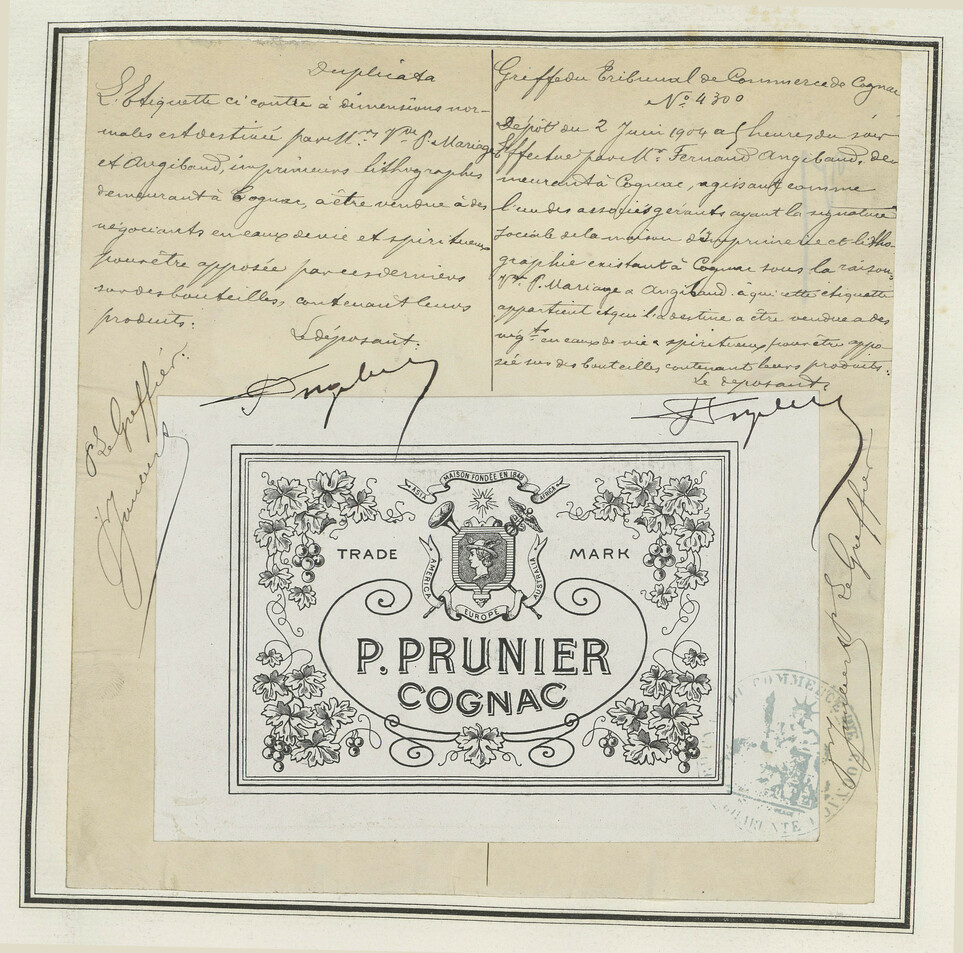 Duplicata
L'Etiquette ci contre à dimensions nor-
males est destinée par M.rs Vve P. Mariage
et Angibaud, imprimeurs lithographes
demeurant à Cognac, a être vendue à des
négociants en eaux de vie et spiritueux
pour être apposée par ces derniers
sur des bouteilles contenant leurs
produits.
Le déposant.
P. Le Greffier.
Greffe du Tribunal de Commerce de Cognac
No 4300
Dépôt du 2 Juin 1904 a 5 heures du soir
Effectué par Mr Fernand Angibaud, de-
meurant à Cognac, agissant comme
l'un des associés gérants ayant la signature
sociale de la maison d'imprimerie et litho-
graphie existant à Cognac sous la raison:
Vve P. Mariage & Angibaud. à qui cette étiquette
appartient et qui la destine a être vendue a des
négts en eaux de vie & spiritueux pour être appo-
sée sur des bouteilles contenant leurs produits.
Le déposant.
P. Le Greffier
MAISON FONDÉE EN 1848
ASIA
AFRICA
TRADE MARK
AMERICA
AUSTRALIA
EUROPE
P. PRUNIER
COGNAC
COMMERCE
CHARENTE